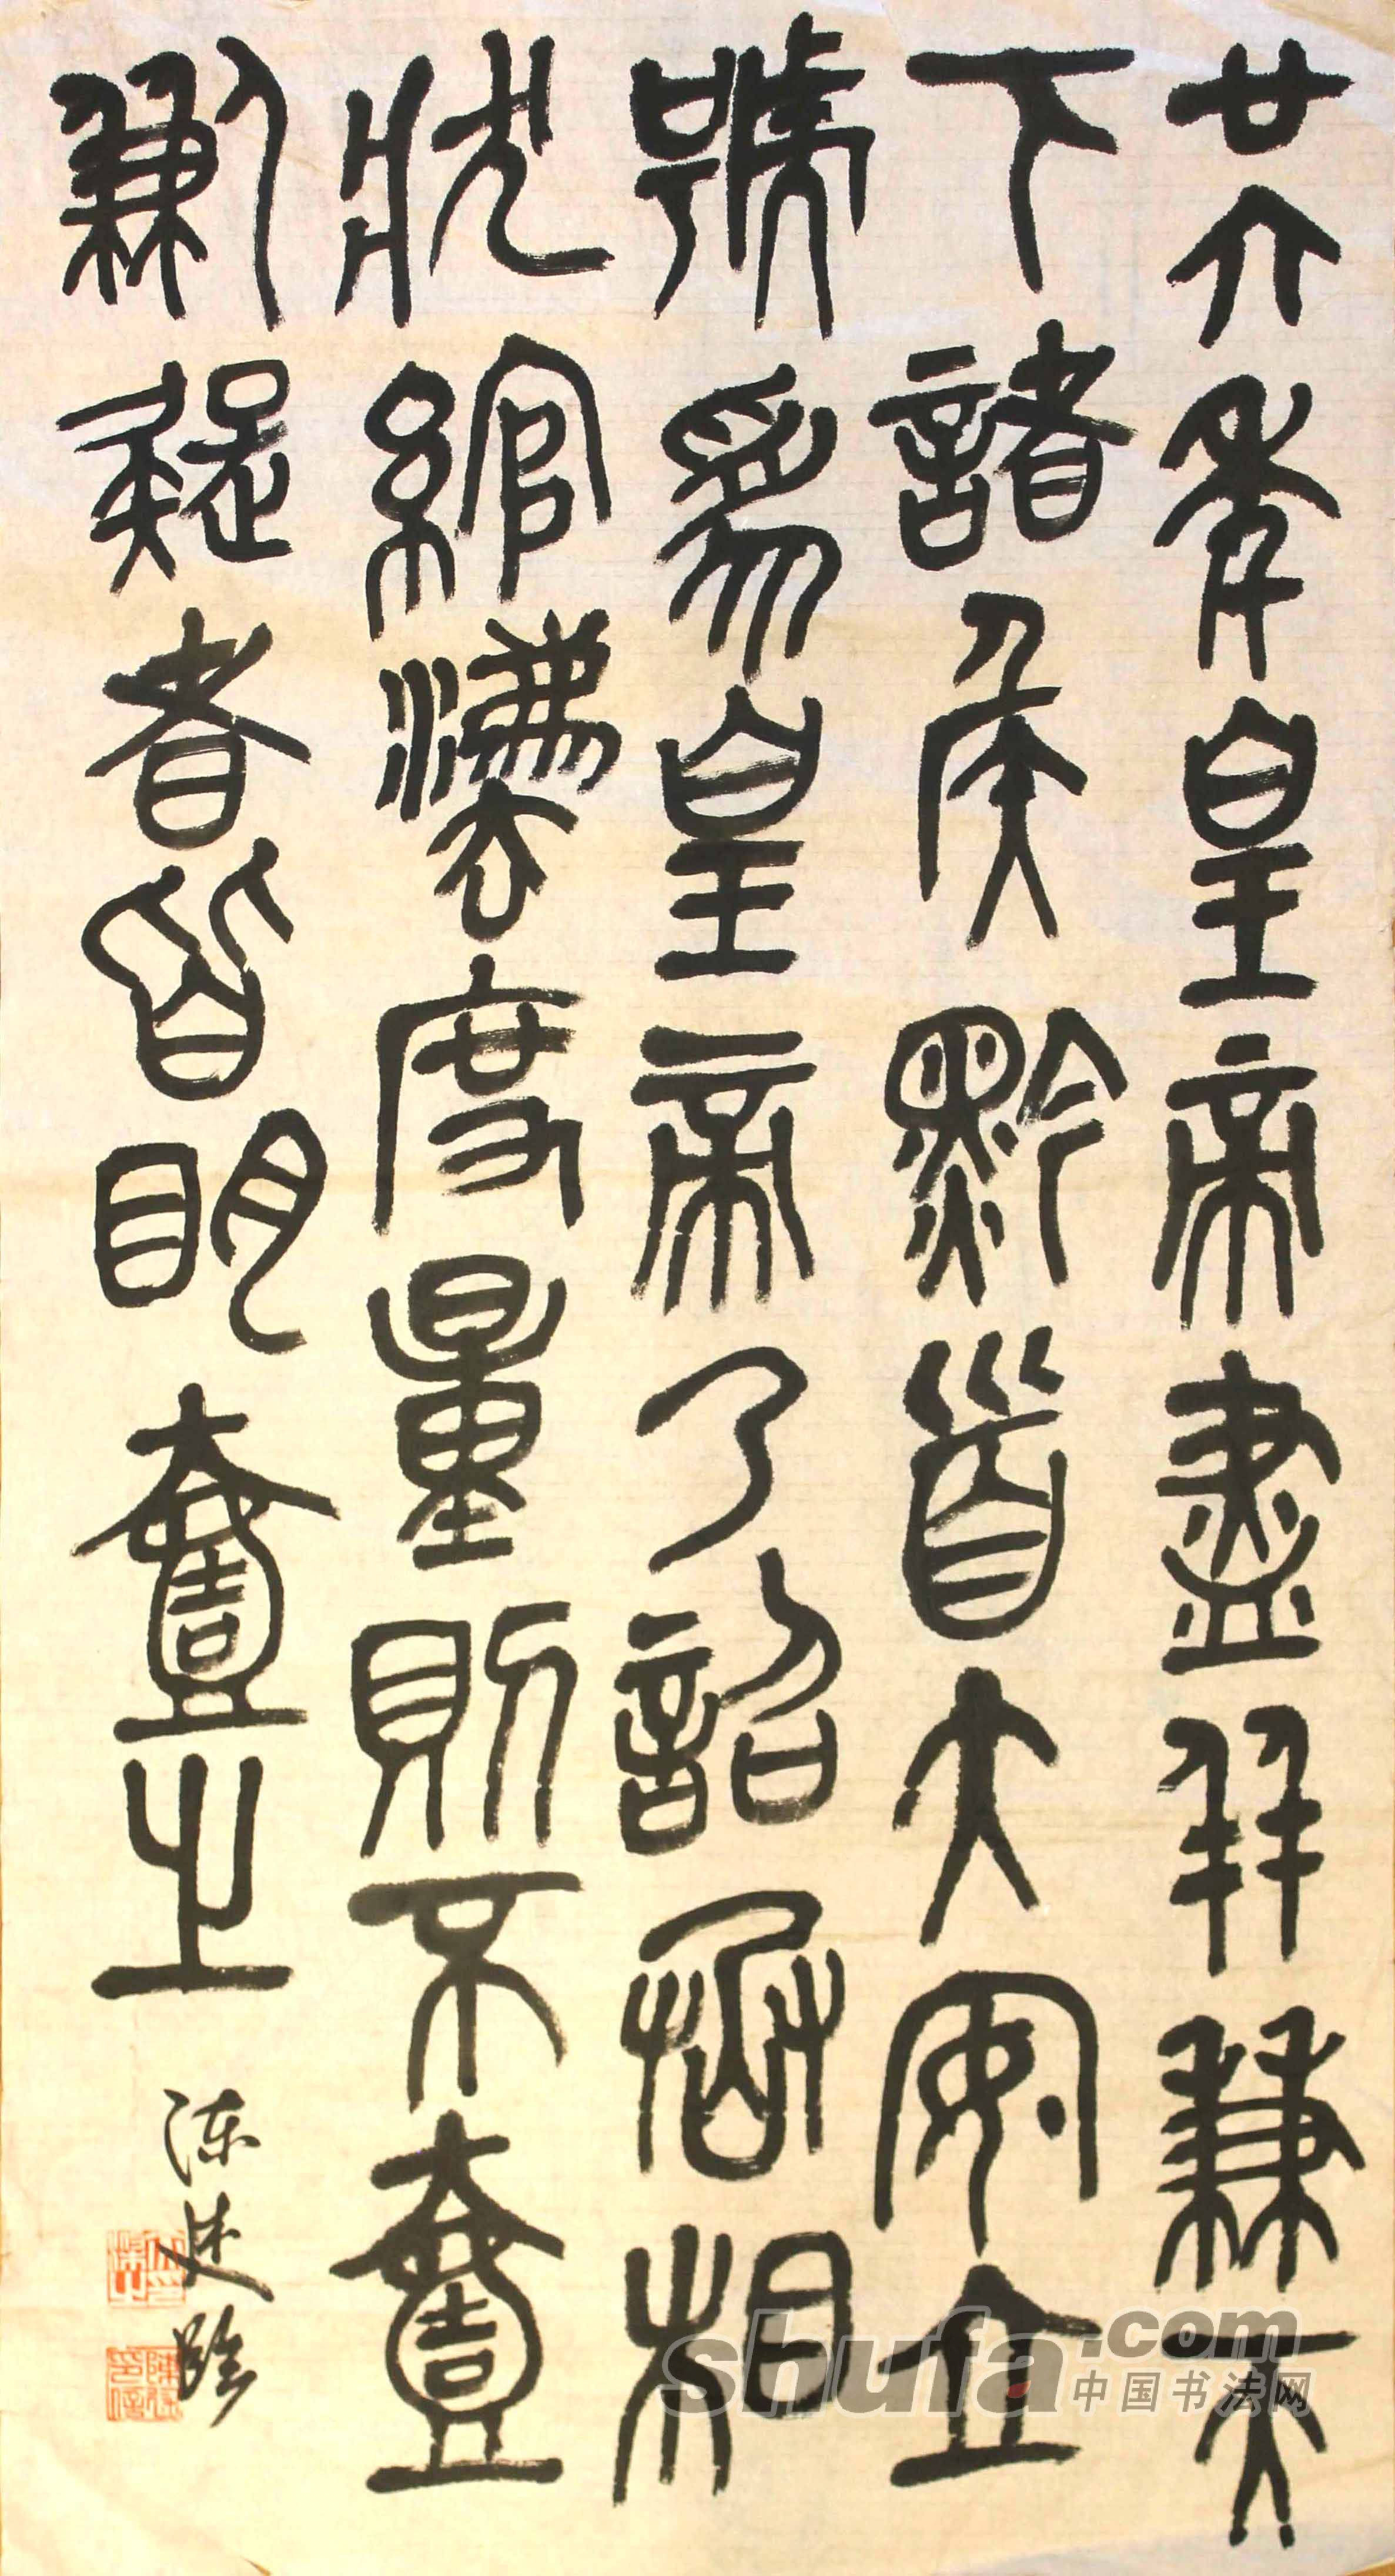 廿六年皇帝盡并兼天
下諸侯黔首大安立
號為皇帝乃詔丞相
狀綰灋度量則不壹
歉疑者皆明壹之
shufa.com
中国书法网